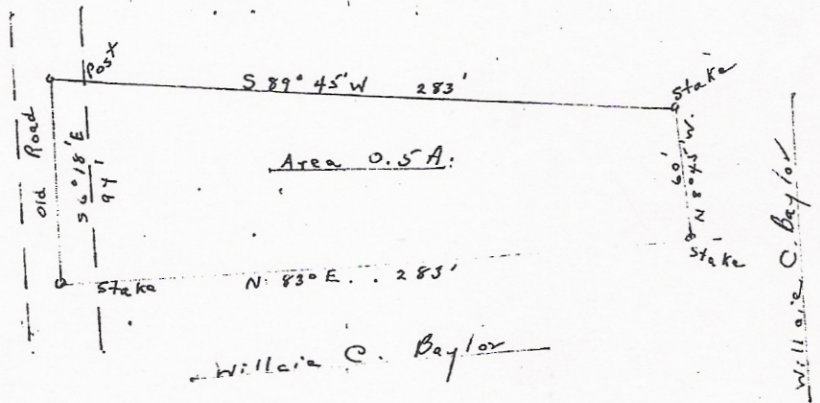 Post
S 89° 45' W 283'
Stake
Old Road
S 6° 18' E
94'
Area 0.5 A.
60'
N 8° 45' W.
Stake
Stake
N. 83° E. . . 283'
Willcie C. Baylor
Willcie C. Baylor